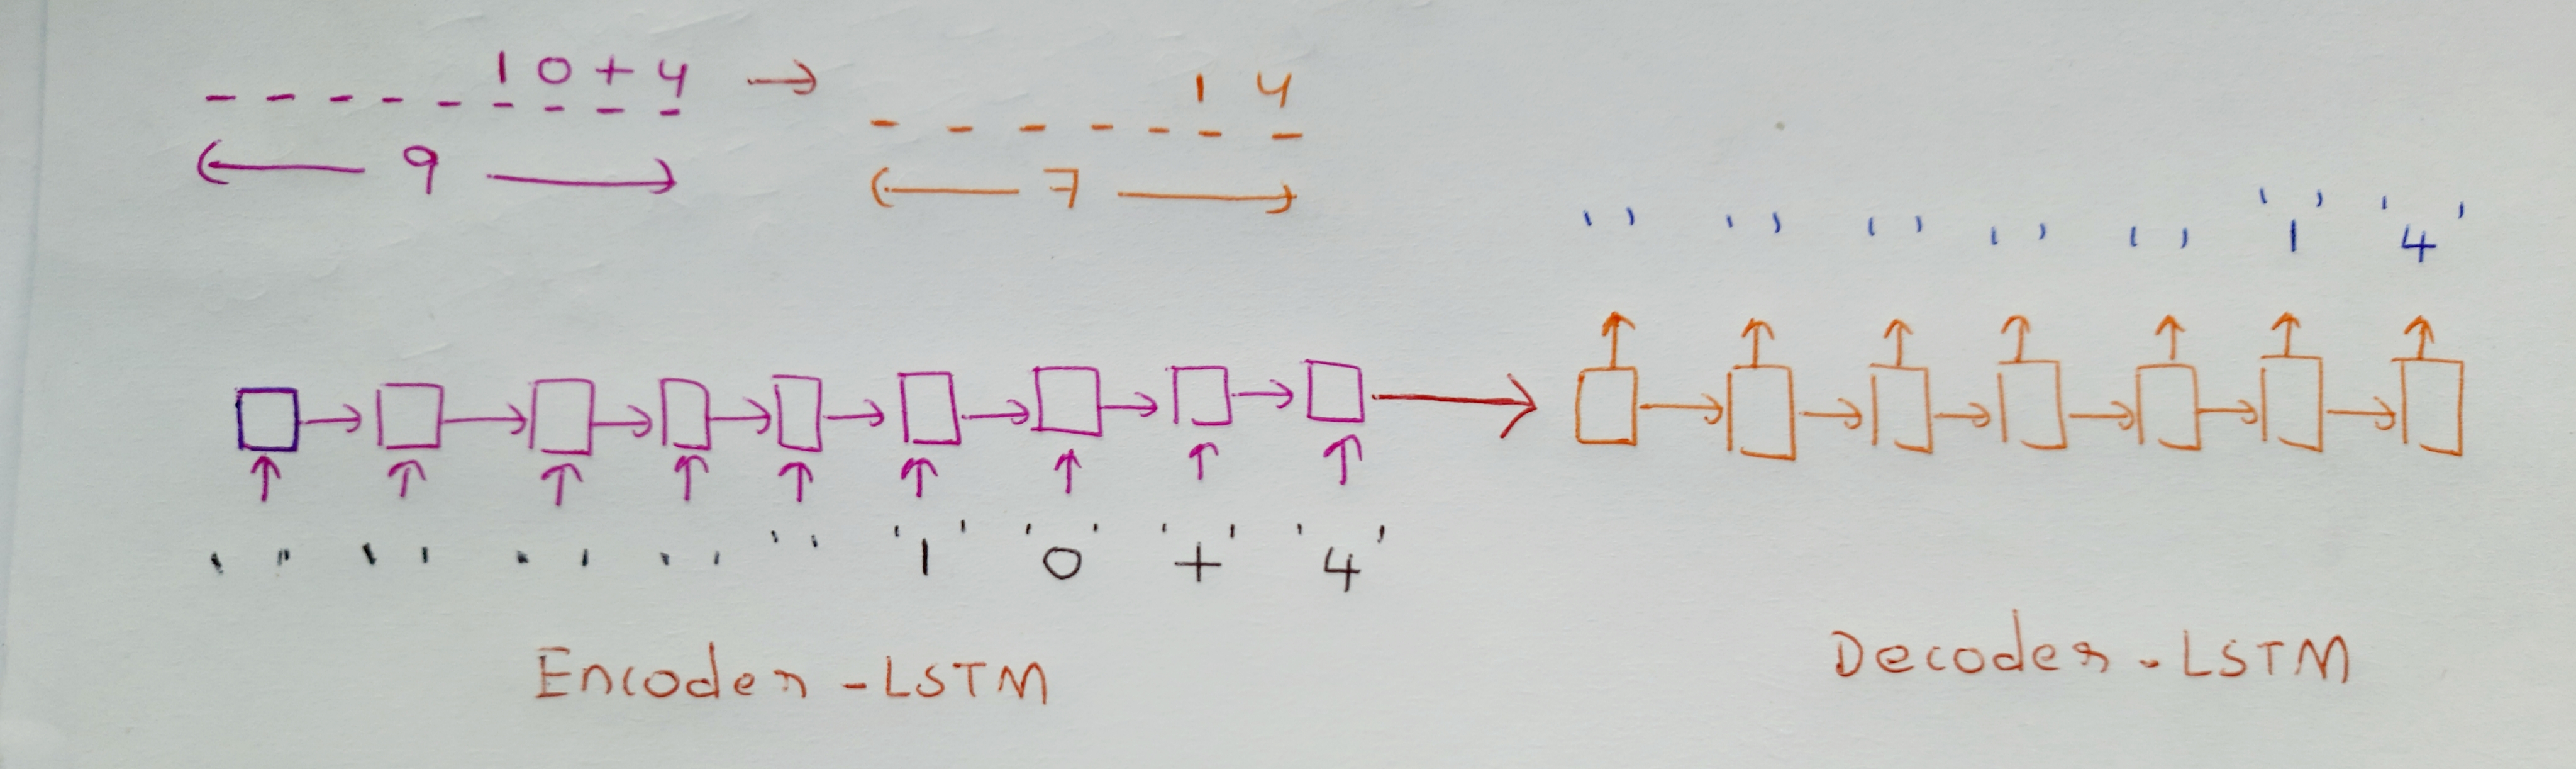 10+4 → 14
9 7
' ' ' ' ' ' ' ' ' ' '1' '4'
' ' ' ' ' ' ' ' ' ' '1' '0' '+' '4'
Encoder-LSTM Decoder-LSTM